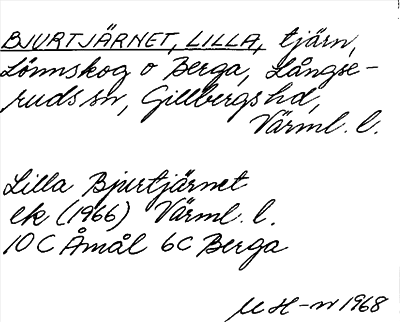 BJURTJÄRNET, LILLA, tjärn,
Lönnskog o Berga, Långse-
ruds sn, Gillbergs hd,
Värml. l.
Lilla Bjurtjärnet
ek (1966) Värml. l.
10C Åmål 6c Berga
M H-n 1968